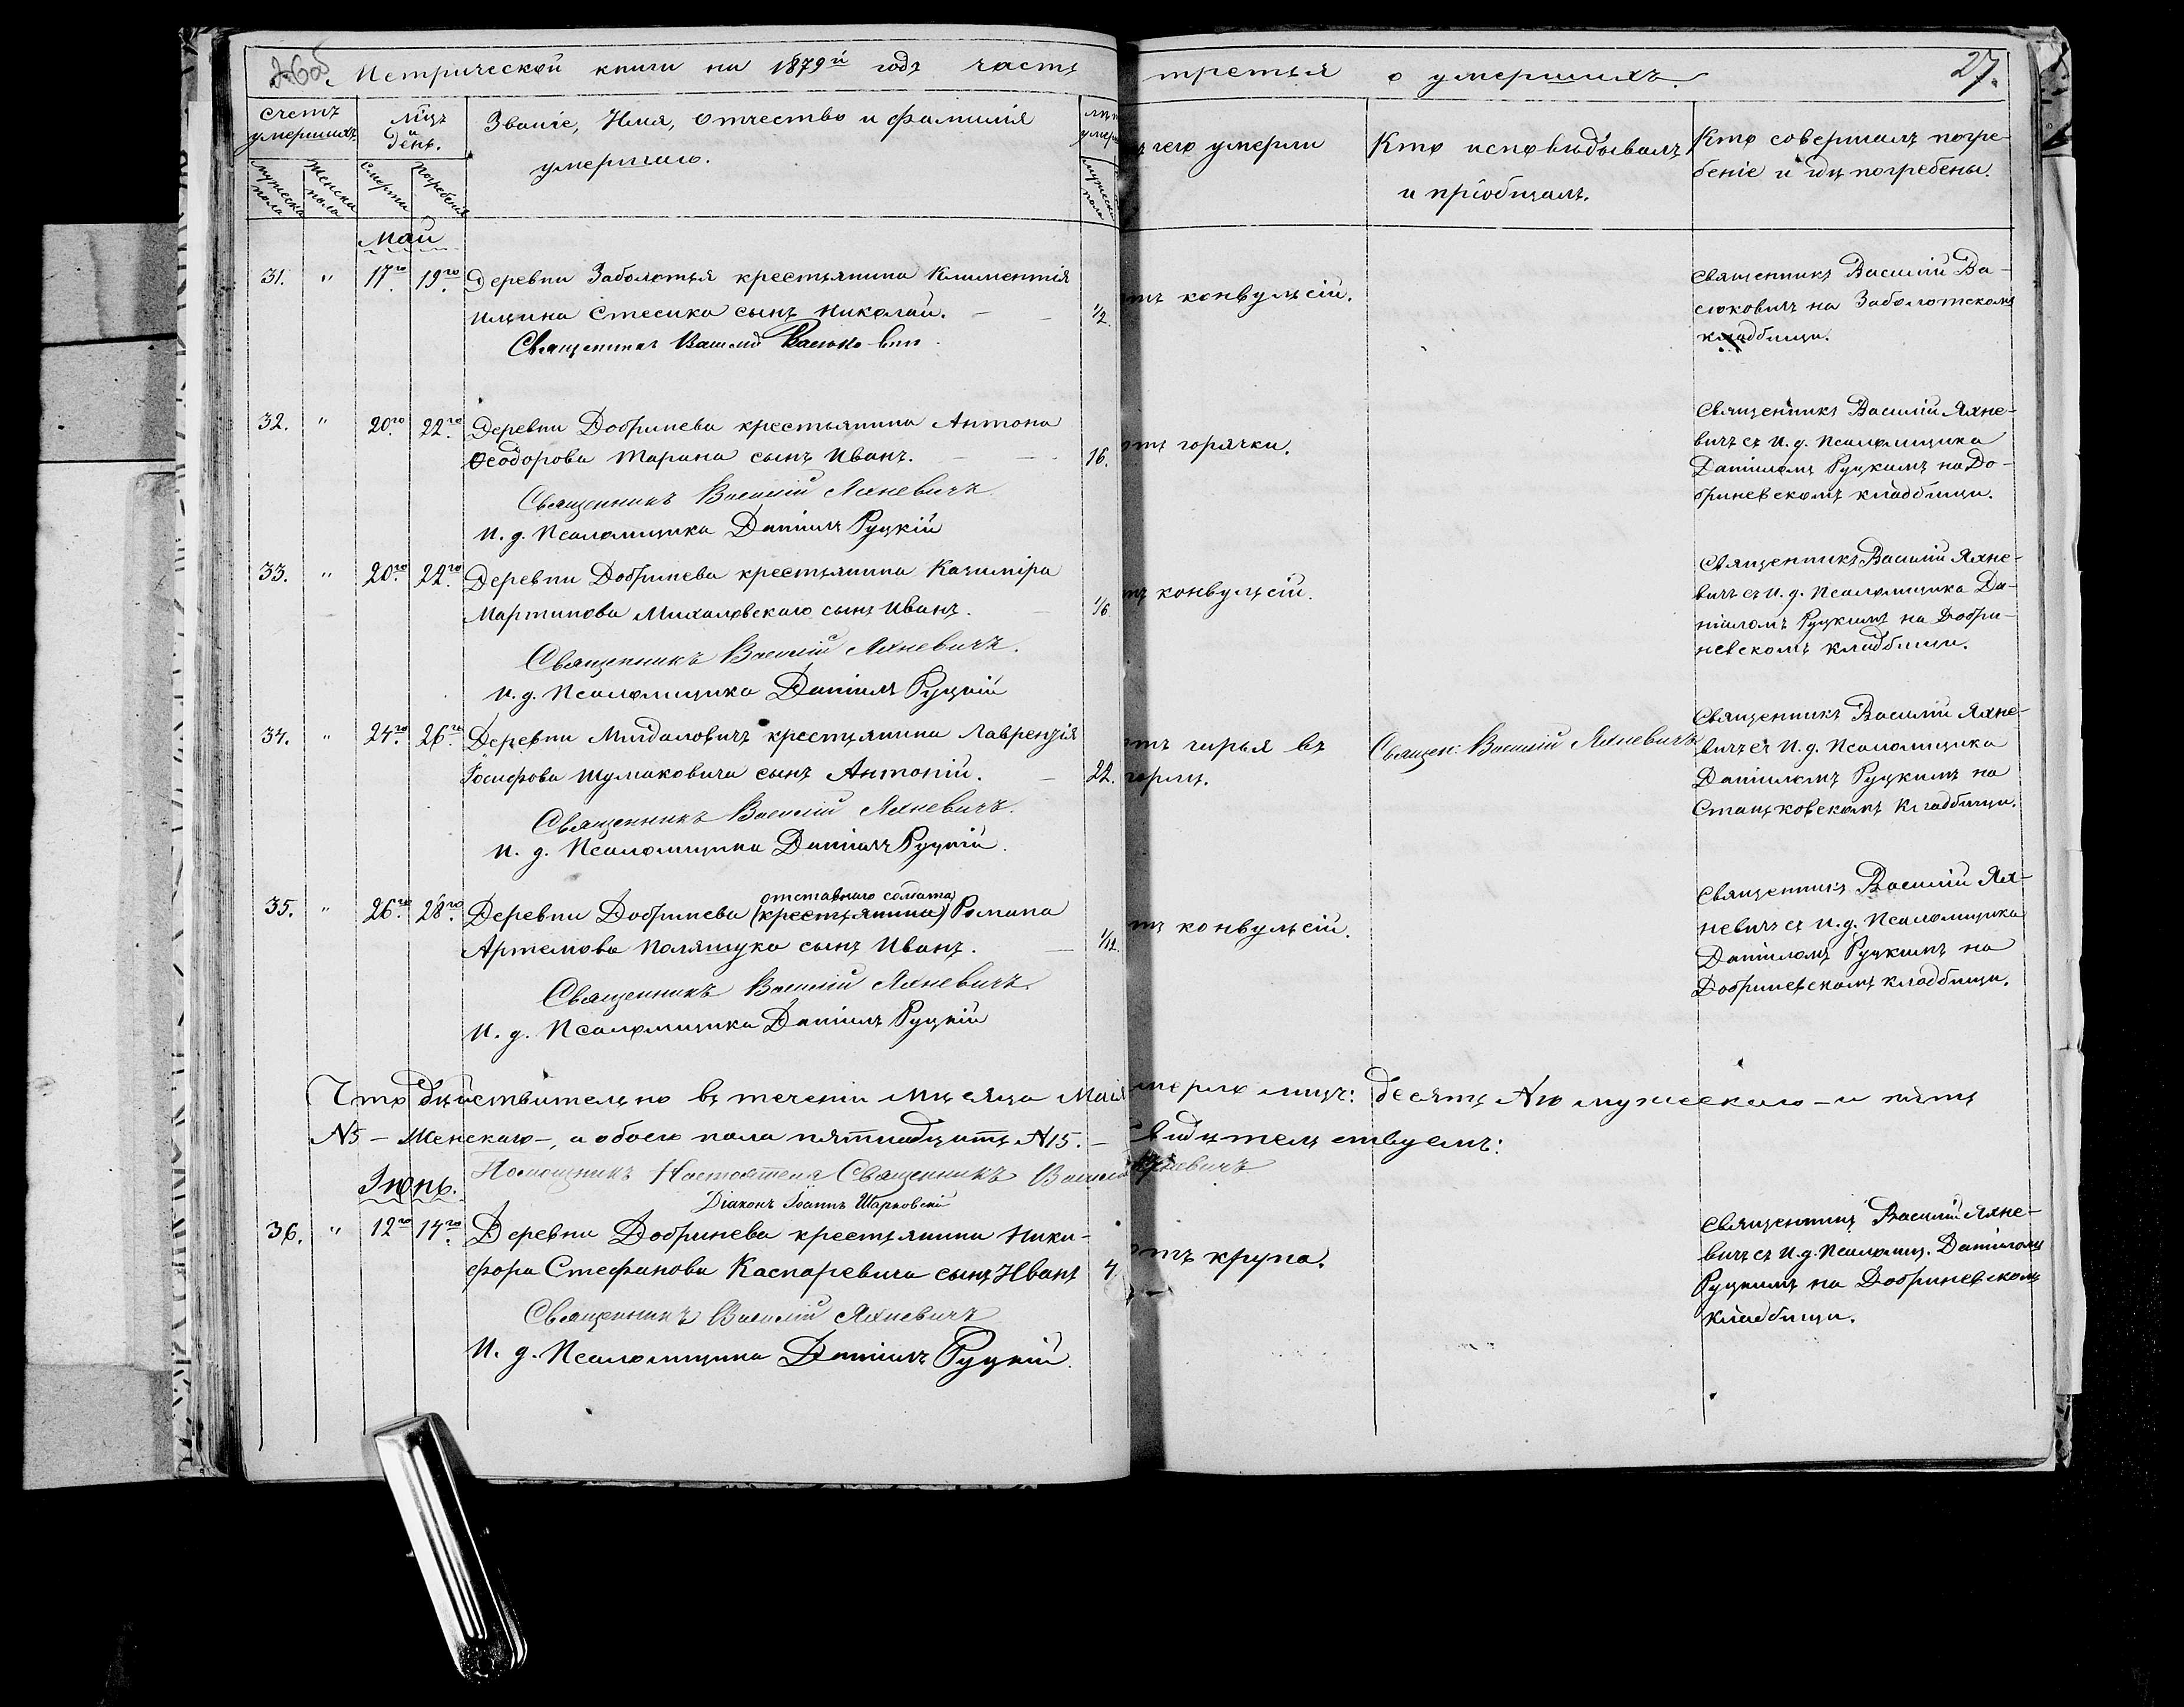 26об. Метрической книги на 1879й годъ часть третья о умершихъ. 27.
Счетъ умершихъ.
Мужеска пола
Женска пола
Мѣцъ и день.
Смерти
Погребенія
Званіе, Имя, Отчество и фамилія
умершаго.
Мужеска пола
чего умерли
Кто исповѣдывалъ
и пріобщалъ.
Кто совершалъ погре-
беніе и гдѣ погребены.
Май
31. " 17го 19го Деревни Заболотья крестьянина Климентія
Ильина Стесика сынъ Николай. 1/2. отъ конвульсій.
Священникъ Василій Васюковичъ
Священникъ Василій Ва-
сюковичъ на Заболотскомъ
кладбищи.
32. " 20го 22го Деревни Добринева крестьянина Антона
Ѳеодорова Марана сынъ Иванъ. 16. отъ горячки.
Священникъ Василій Яхневичъ
И. д. Псаломщика Даніилъ Руцкій
Священникъ Василій Яхне-
вичъ съ И. д. Псаломщика
Даніиломъ Руцкимъ на До-
бриневскомъ кладбищи.
33. " 20го 22го Деревни Добринева крестьянина Казиміра
Мартинова Михаловскаго сынъ Иванъ. 1/6 отъ конвульсій.
Священникъ Василій Яхневичъ.
И. д. Псаломщика Даніилъ Руцкій
Священникъ Василій Яхне-
вичъ съ И. д. Псаломщика Да-
ніиломъ Руцкимъ на Добри-
невскомъ кладбищи.
34. " 24го 26го Деревни Магдаловичъ крестьянина Лаврентія
Іосифова Шумаковича сынъ Антоній. 22. отъ чирья въ
горлѣ.
Священникъ Василій Яхневичъ.
И. д. Псаломщика Даніилъ Руцкій.
Священ: Василій Яхневичъ
Священникъ Василій Яхне-
вичъ съ И. д. Псаломщика
Даніиломъ Руцкимъ на
Станьковскомъ кладбищи.
отставного солдата
35. " 26го 28го Деревни Добринева (крестьянина) Романа
Артемова Поляшука сынъ Иванъ. 1/12. отъ конвульсій.
Священникъ Василій Яхневичъ.
И. д. Псаломщика Даніилъ Руцкій
Священникъ Василій Ях-
невичъ съ И. д. Псаломщика
Даніиломъ Руцкимъ на
Добриневскомъ кладбищи.
Что дѣйствительно въ теченіи мѣсяца Маія умерло лицъ: десять №10 мужескаго - и пять
№5 - Женскаго -, а обоего пола пятнадцать №15. - Свидѣтельствуемъ:
Помощникъ Настоятеля Священникъ Василій Яхневичъ
Діаконъ Іоаннъ Шарковскій
Іюнь.
36. " 12го 14го Деревни Добринева крестьянина Ники-
фора Стефанова Каспаревича сынъ Иванъ 4 отъ крупа.
Священникъ Василій Яхневичъ
И. д. Псаломщика Даніилъ Руцкій.
Священникъ Василій Яхне-
вичъ съ И. д. Псаломщ. Даніиломъ
Руцкимъ на Добриневскомъ
кладбищи.